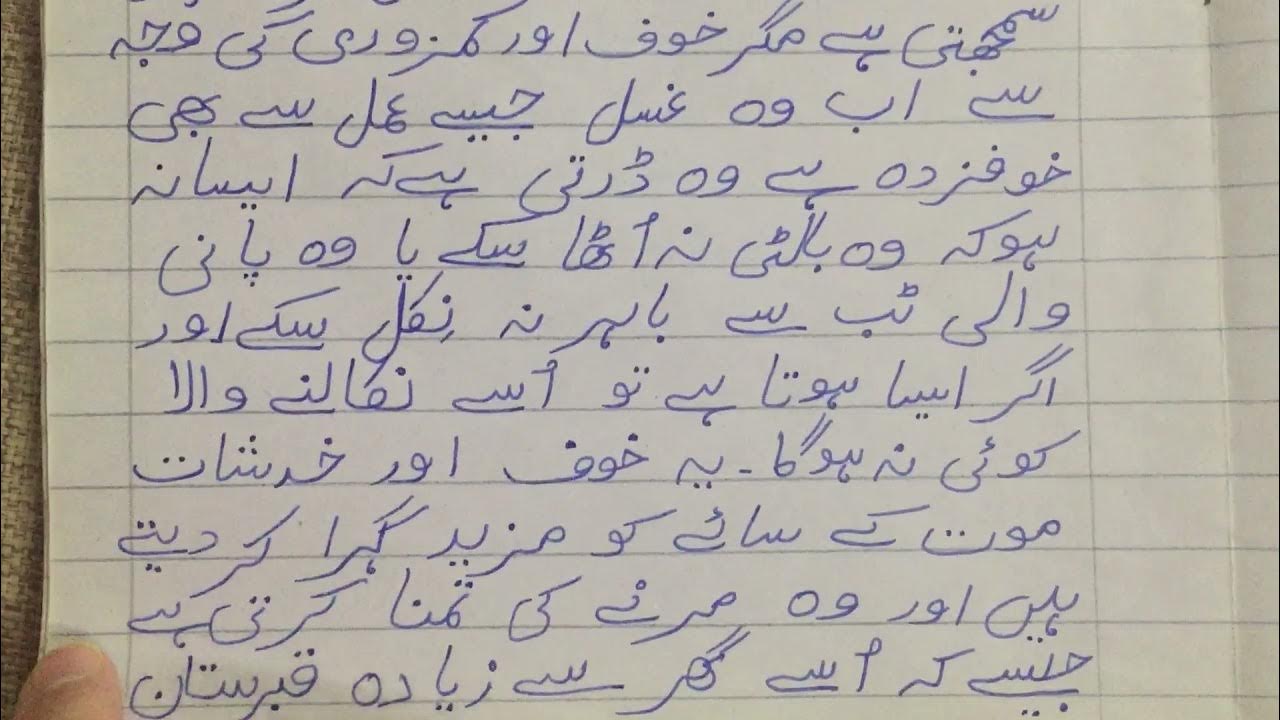 سمجھتی ہے مگر خوف اور کمزوری کی وجہ
سے اب وہ غسل جیسے عمل سے بھی
خوفزدہ ہے وہ ڈرتی ہے کہ ایسا نہ
ہو کہ وہ بالٹی نہ اُٹھا سکے یا وہ پانی
والی ٹب سے باہر نہ نِکل سکے اور
اگر ایسا ہوتا ہے تو اُسے نکالنے والا
کوئی نہ ہو گا۔ یہ خوف اور خدشات
موت کے سائے کو مزید گہرا کر دیتے
ہیں اور وہ مرنے کی تمنا کرتی ہے
جیسے کہ اُسے گھر سے زیادہ قبرستان